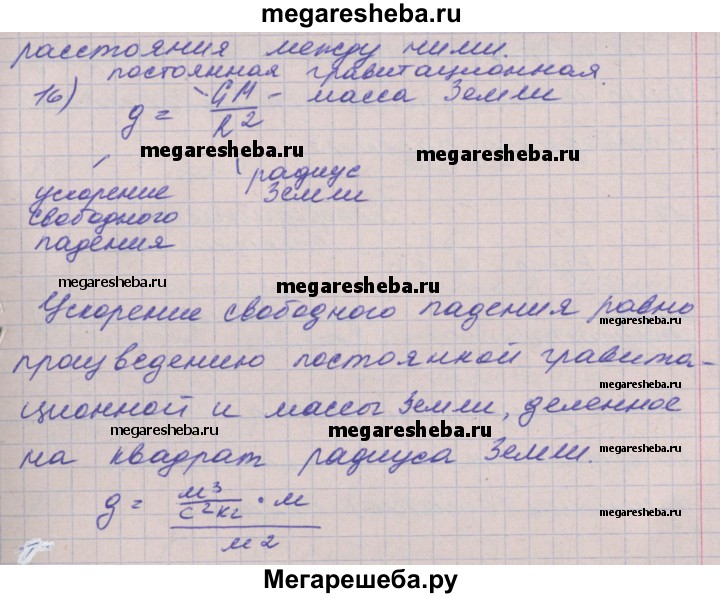 megaresheba.ru
расстояния между ними.
постоянная гравитационная.
16) g = GM/R² - масса Земли
megaresheba.ru megaresheba.ru
радиус
Земли
ускорение
свободного
падения
megaresheba.ru megaresheba.ru
Ускорение свободного падения равно
megaresheba.ru
произведению постоянной гравита-
megaresheba.ru
ционной и массы Земли, деленное
megaresheba.ru megaresheba.ru
на квадрат радиуса Земли.
megaresheba.ru
g = м³/с²кг · м / м²
megaresheba.ru
Мегарешеба.ру